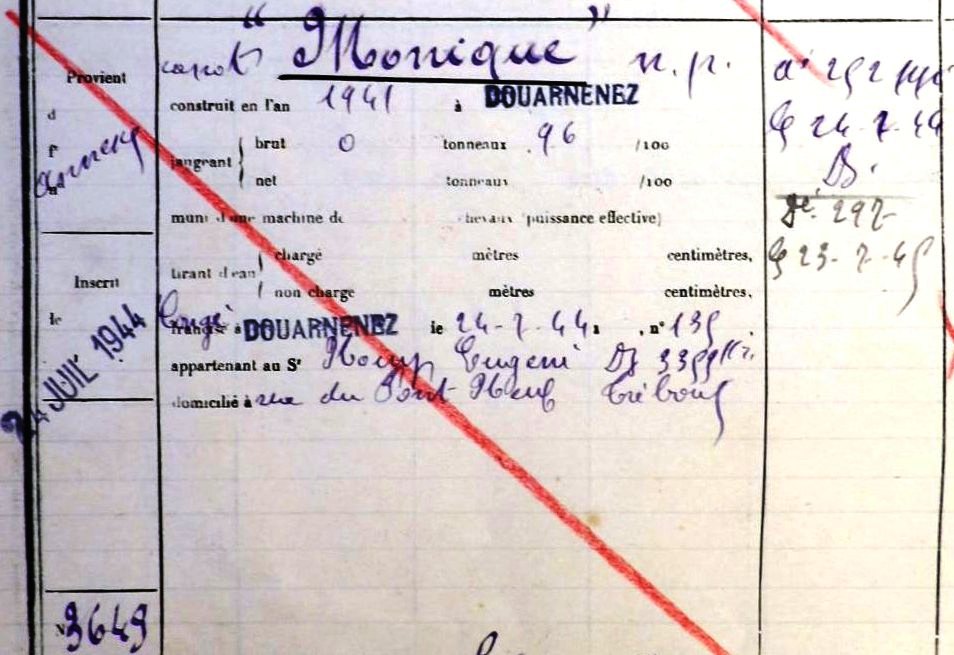 canot "Monique" n.p.
Provient
d
f
n°
construit en l'an 1941 à DOUARNENEZ
jaugeant
brut 0 tonneaux 96 /100
net tonneaux /100
muni d'une machine de chevaux (puissance effective)
tirant d'eau
chargé mètres centimètres,
non chargé mètres centimètres,
Inscrit
le
24 JUIL 1944
Congé
francisé à DOUARNENEZ le 24-7-44, n° 135,
appartenant au Sr Eugène
domicilié à rue du Pont Neuf Tréboul
N° 3649
24-7-44
23-7-45